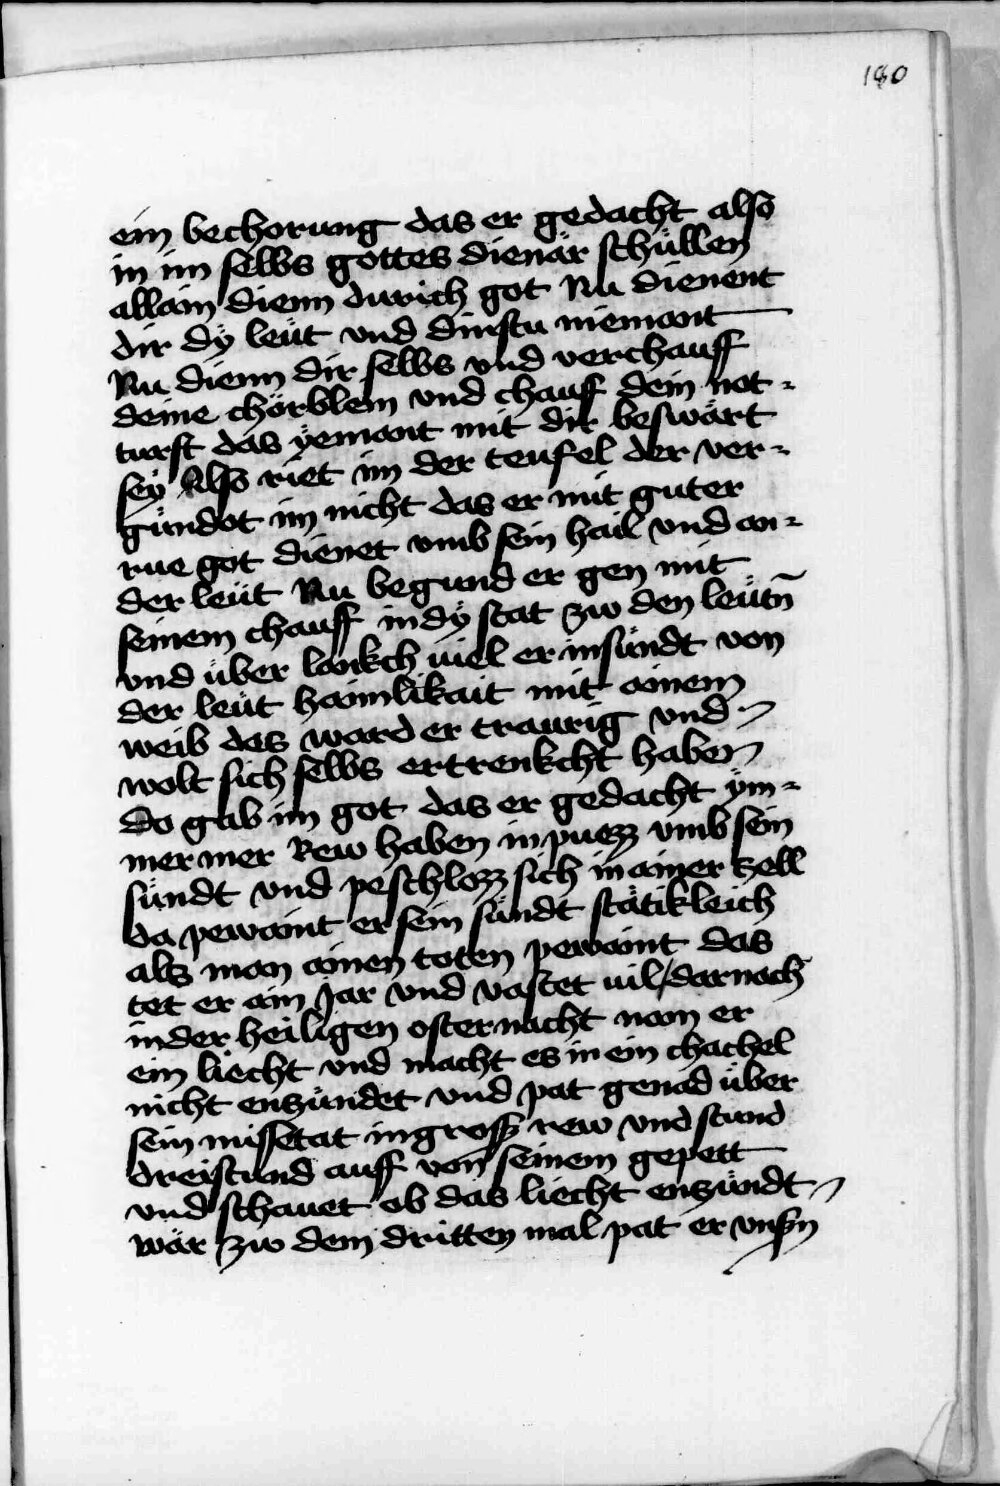 180
ein bechorung das er gedacht also
in im selbs gottes dienär schüllen
allain dienn durich got Nu dienent
dir dÿ leüt vnd dinstu niemant
Nu dienn dir selbs vnd verchauff
deine chörblem vnd chauf dein not-
turft das ÿemant mit dir beswärt
seÿ Also riet im der teufel der ver-
gündot im nicht das er mit guter
rue got dienet vmb sein hail vnd an-
der leüt Nu begund er gen mit
seinem chauff in dÿ stat zw den leütn̄
vnd über lankch viel er in sündt von
der leüt haimlikait mit ainem
weib das ward er traurig vnd
wolt sich selbs ertrenkcht haben
do gab im got das er gedacht ÿm-
mer mer Rew haben in puezz vmb sein
sündt vnd peschlozz sich in ainer zell
da pewaint er sein sündt stätikleich
als man ainen toten pewaint das
tet er ain Jar vnd vastet uil / darnach
in der heiligen osternacht nam er
ein liecht vnd macht es in ein chachel
nicht enzündet vnd pat genad über
sein missetat in gross rew vnd stund
dreistund auff von seinem gepett
vnd schauet ob das liecht enzündt
wär zw dem dritten mal pat er vnsn